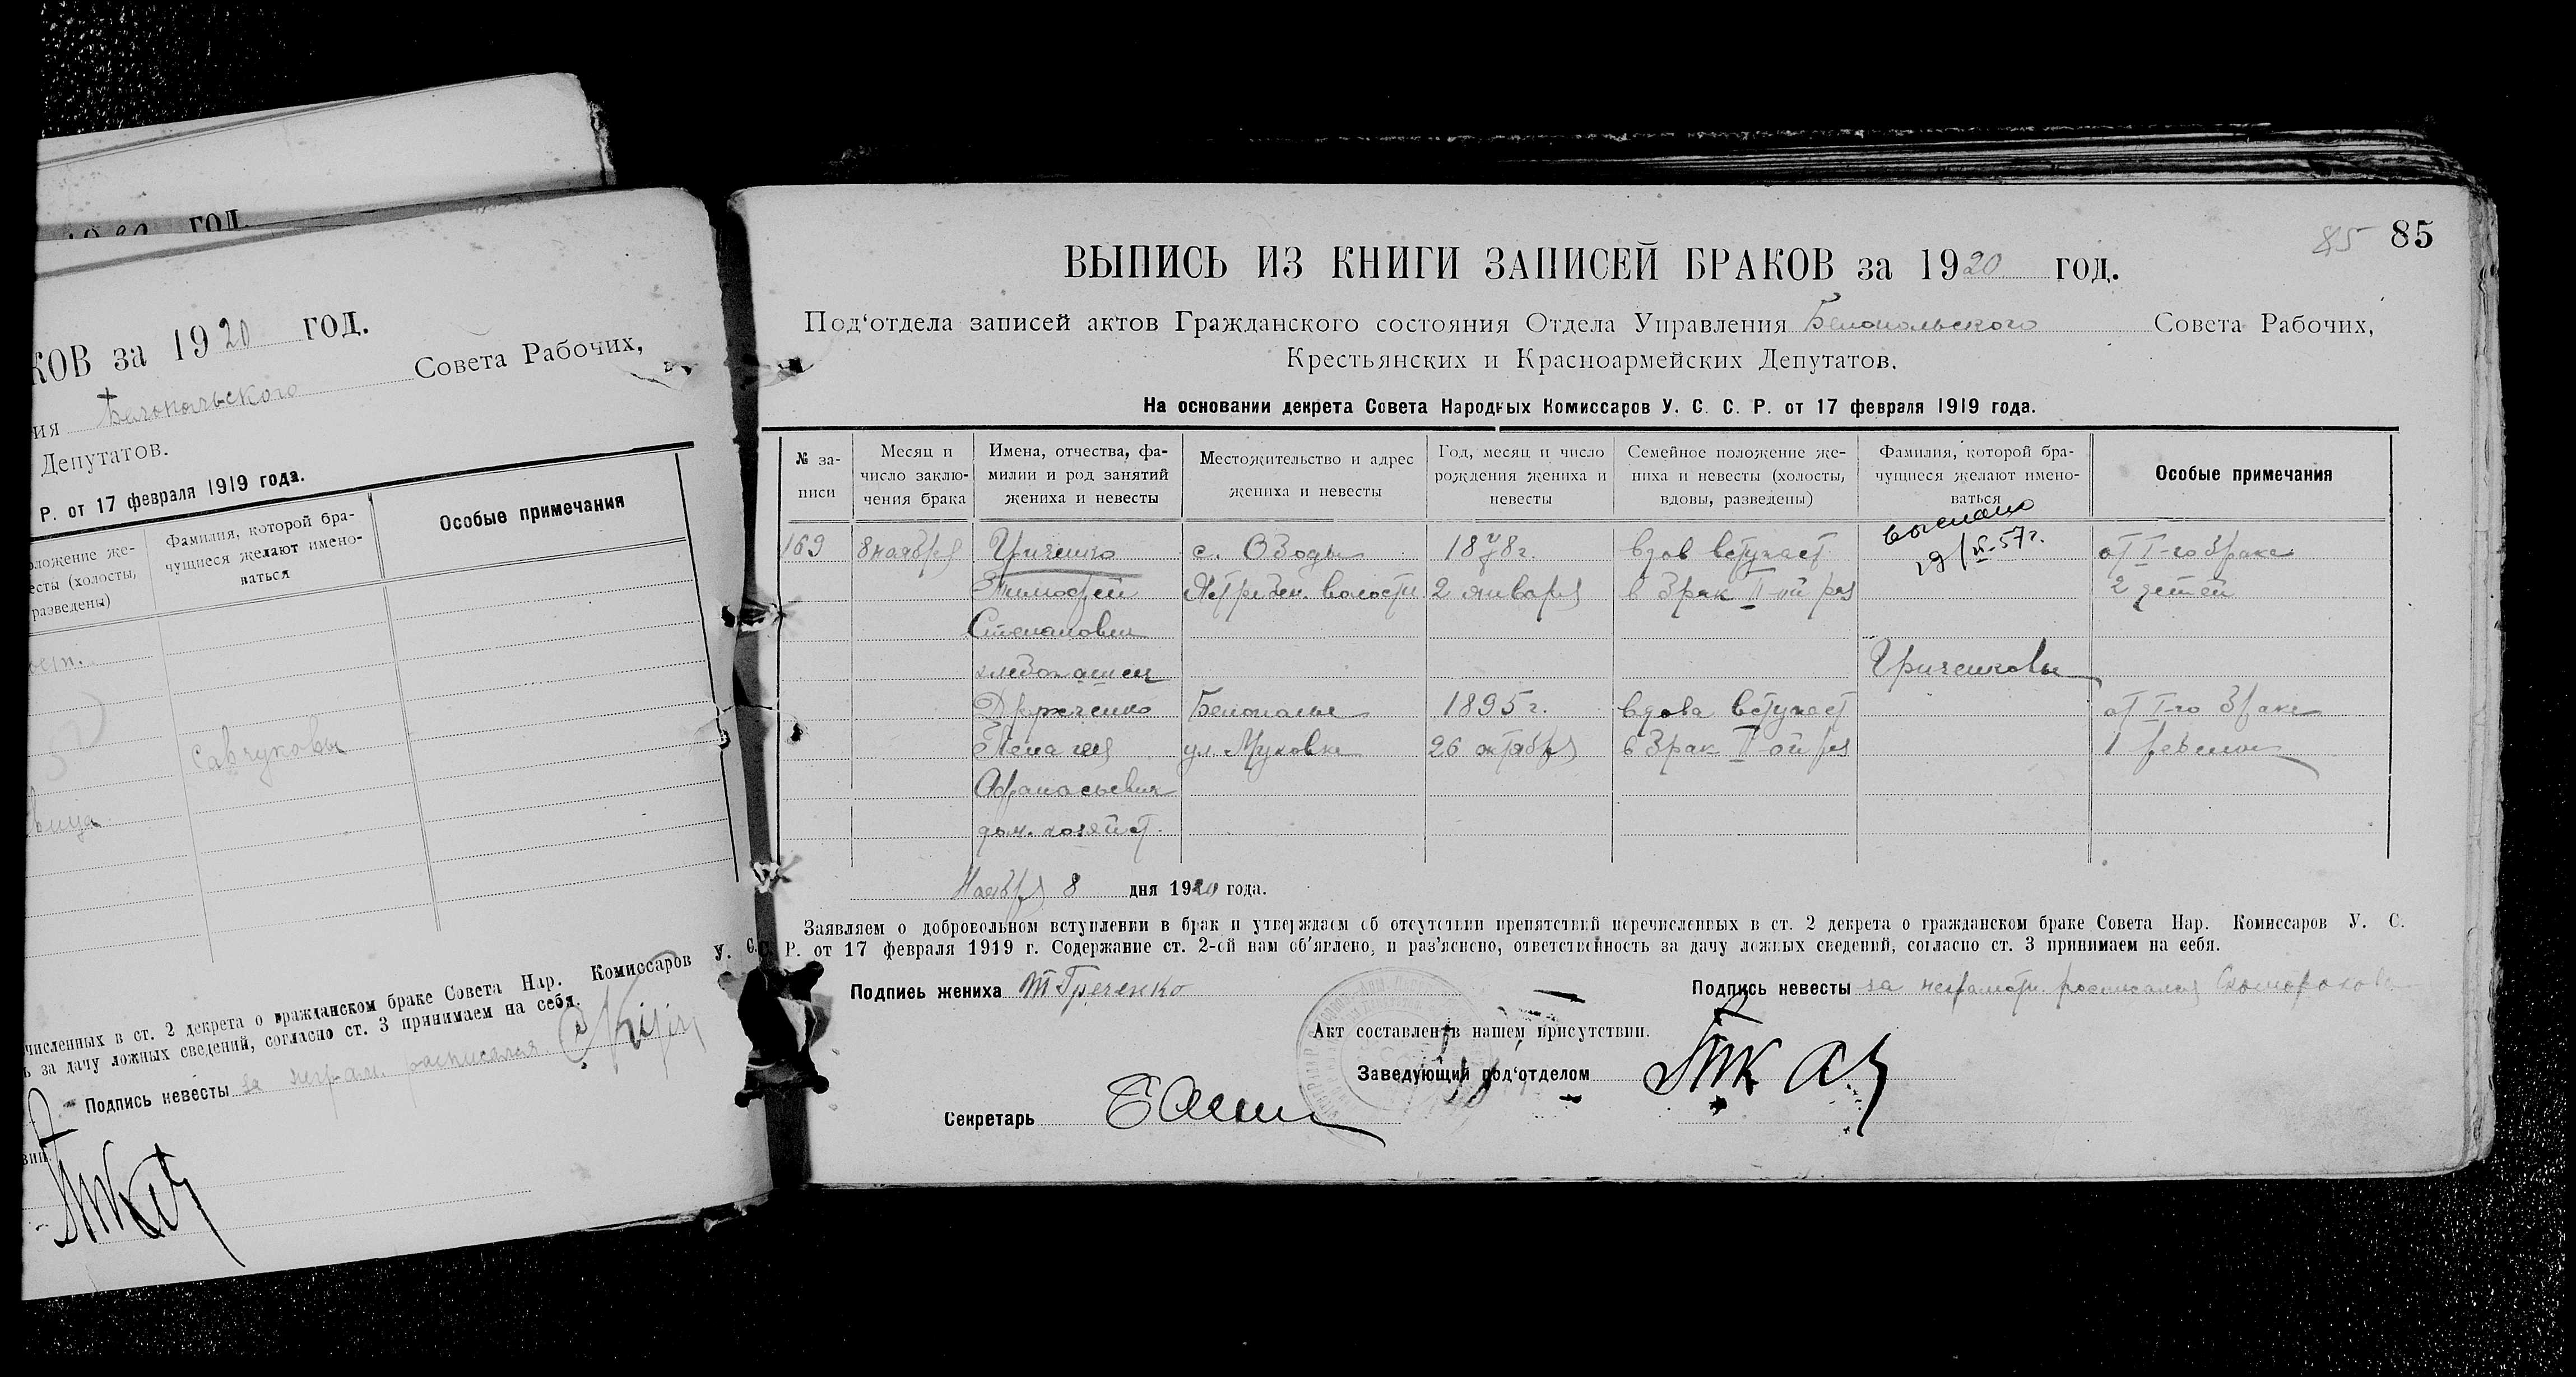 19 20 год.
КОВ за 19 20 год.
ия Белопольского Совета Рабочих,
Депутатов.
Р. от 17 февраля 1919 года.
оложение же-
есты (холосты,
разведены)
Фамилия, которой бра-
чущиеся желают имено-
ваться
Особые примечания
Савчуковы
вица
численных в ст. 2 декрета о гражданском браке Совета Нар. Комиссаров У. С.
ь за дачу ложных сведений, согласно ст. 3 принимаем на себя.
Подпись невесты за неграм. расписался
85 85
ВЫПИСЬ ИЗ КНИГИ ЗАПИСЕЙ БРАКОВ за 1920 год.
Под‘отдела записей актов Гражданского состояния Отдела Управления Белопольского Совета Рабочих,
Крестьянских и Красноармейских Депутатов.
На основании декрета Совета Народных Комиссаров У. С. С. Р. от 17 февраля 1919 года.
№ за-
писи
Месяц и
число заклю-
чения брака
Имена, отчества, фа-
милии и род занятий
жениха и невесты
Местожительство и адрес
жениха и невесты
Год, месяц и число
рождения жениха и
невесты
Семейное положение же-
ниха и невесты (холосты,
вдовы, разведены)
Фамилия, которой бра-
чущиеся желают имено-
ваться
Особые примечания
выслано
169 8 ноября Гриченко с. Ободы вдов вступает от I-го брака
Тимофей волости 2 января в брак II-ой раз 2 детей
Степанович
хлебопашец Гриченковы
Дряченко Белополье 1895 г. вдова вступает от I-го брака
Пелагея ул. 26 октября в брак II-ой раз 1 ребенок
Афанасьевна
дом. хозяйст.
Ноября 8 дня 1920 года.
Заявляем о добровольном вступлении в брак и утверждаем об отсутствии препятствий перечисленных в ст. 2 декрета о гражданском браке Совета Нар. Комиссаров У. С.
С. Р. от 17 февраля 1919 г. Содержание ст. 2-ой нам об‘явлено, и раз‘яснено, ответственность за дачу ложных сведений, согласно ст. 3 принимаем на себя.
Подпись жениха Т Греченко Подпись невесты за неграмотн. росписался
Акт составлен в нашем присутствии.
Заведующий под‘отделом
Секретарь